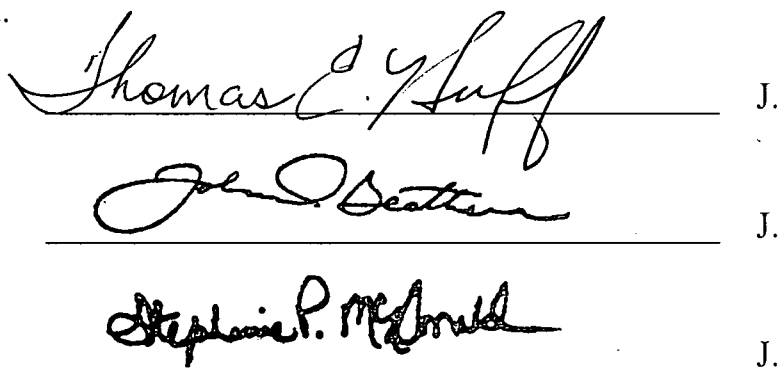 Thomas E. Huff J.
John D. J.
Stephanie P. McDonald J.